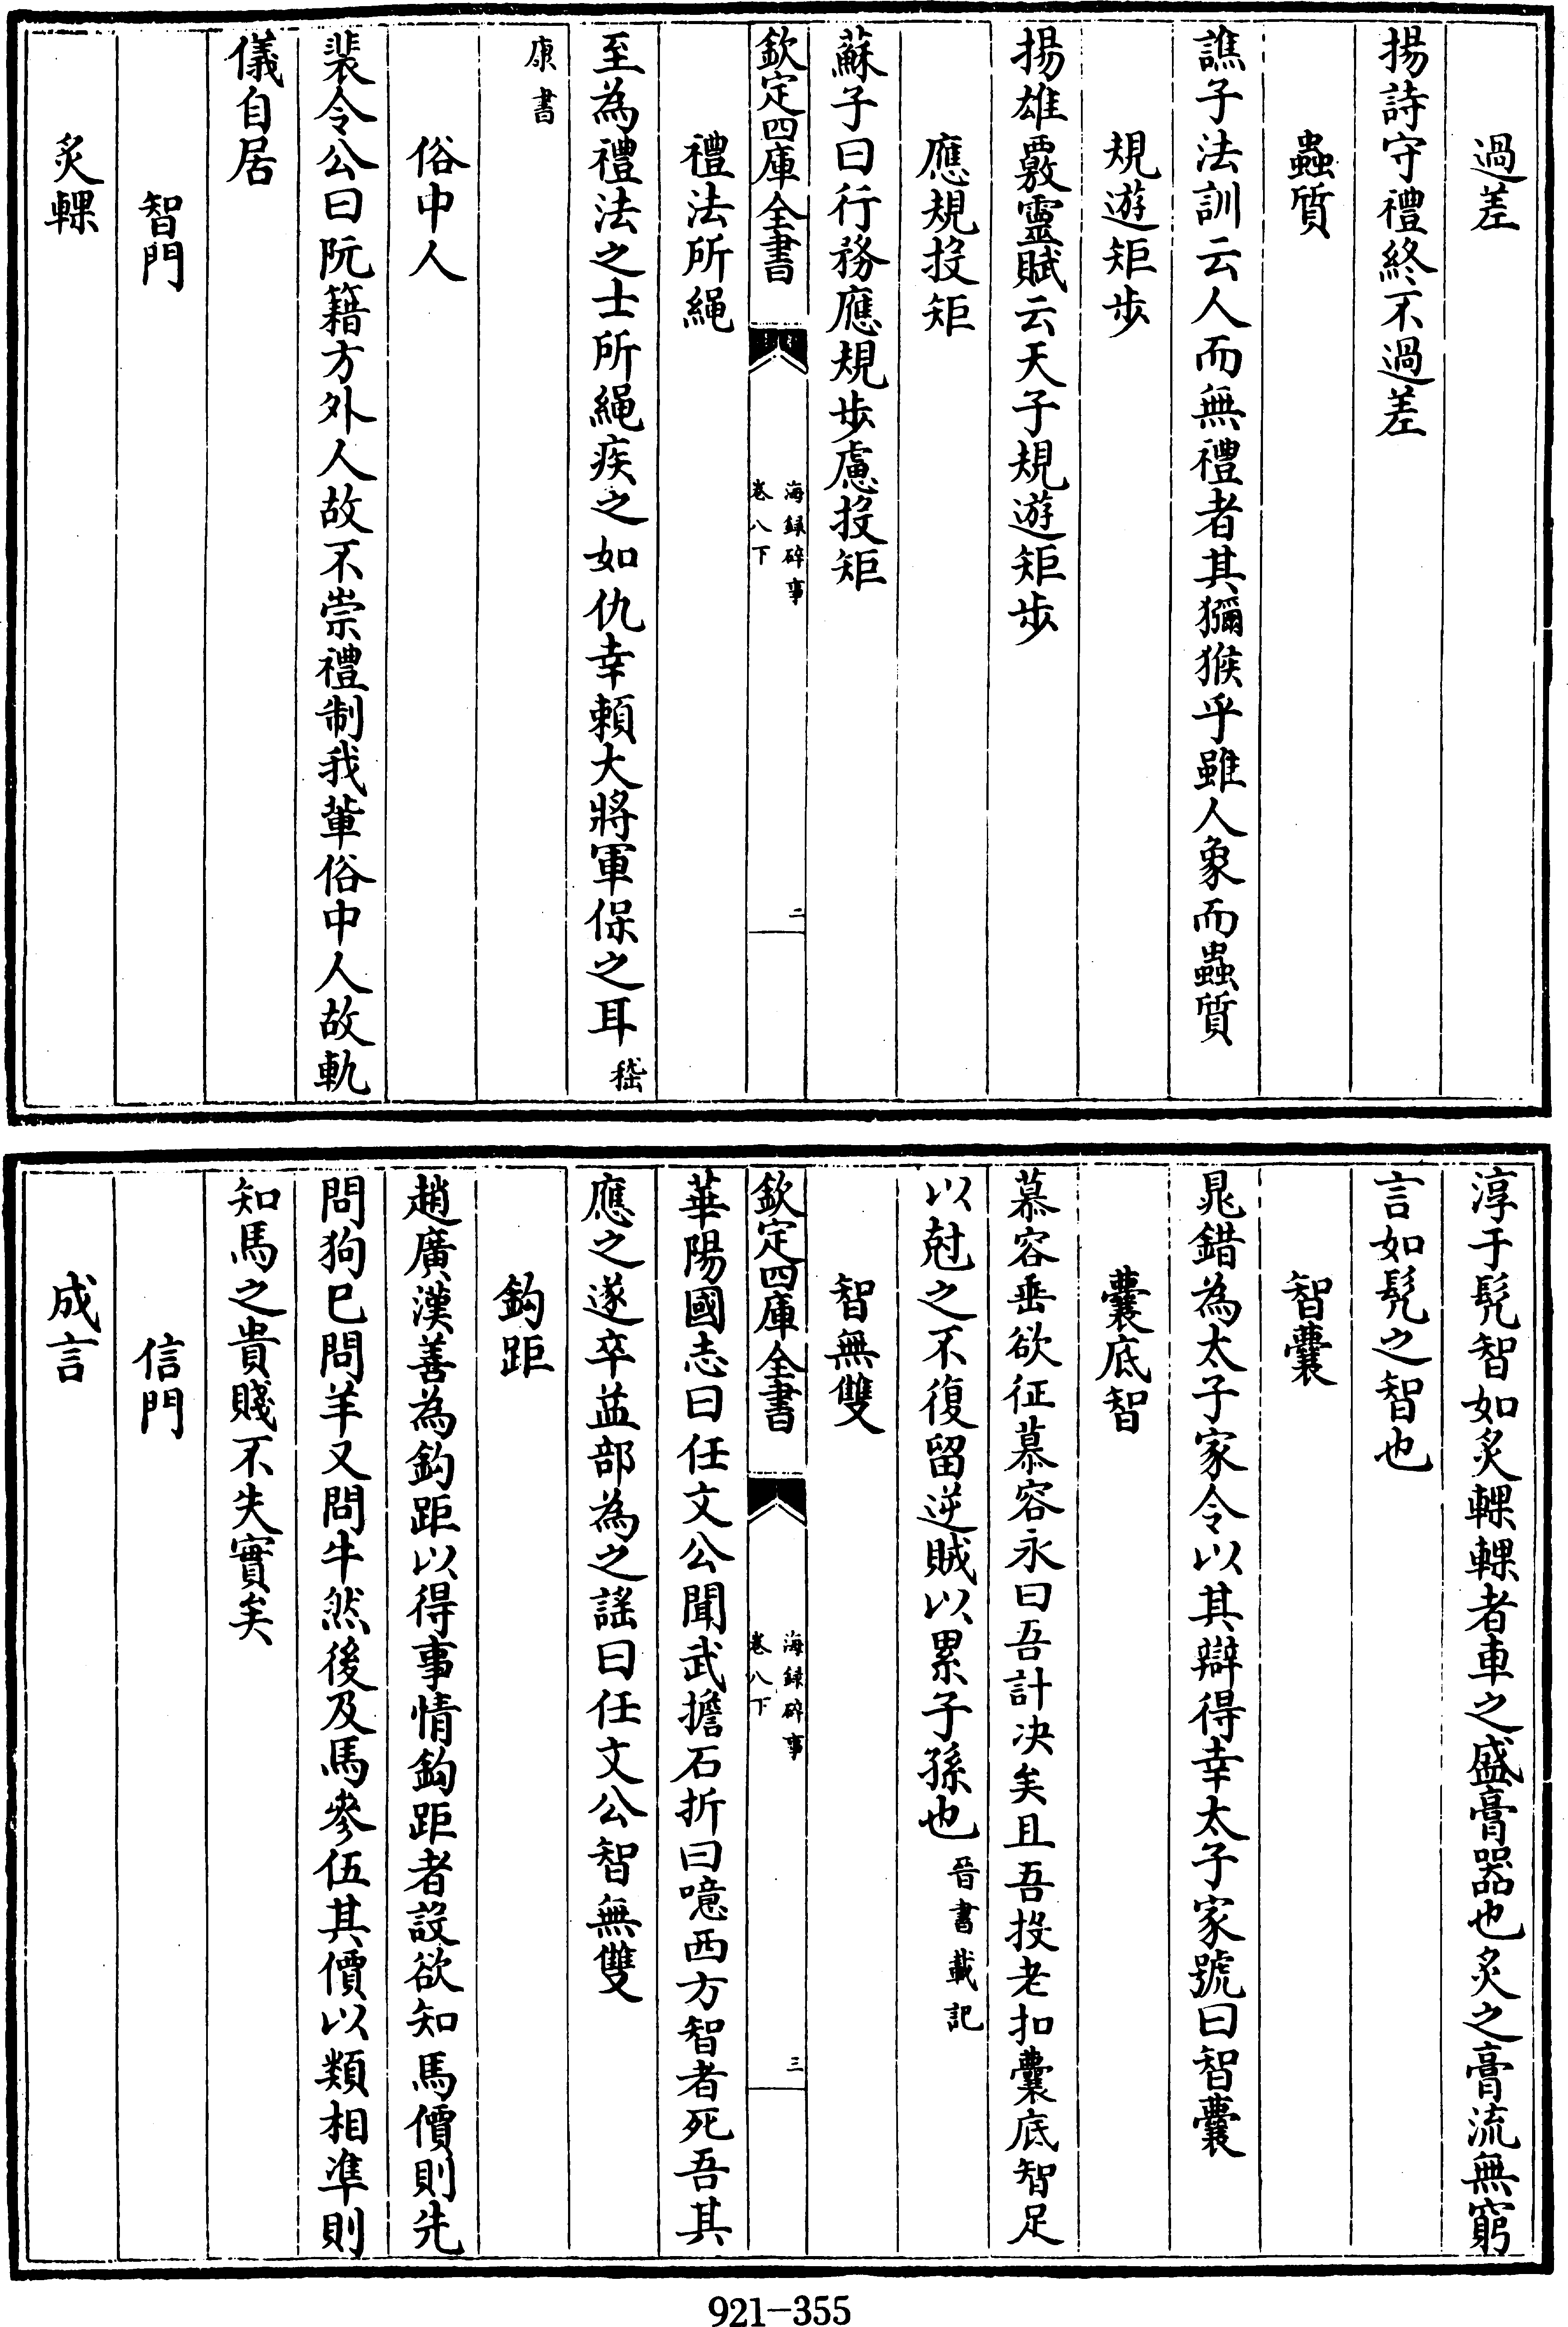 過差
揚詩守禮終不過差
蟲質
譙子法訓云人而無禮者其獼猴乎雖人象而蟲質
規遊矩步
揚雄覈靈賦云天子規遊矩步
應規投矩
蘇子曰行務應規步慮投矩
欽定四庫全書
海録碎事
卷八下
二
禮法所繩
至為禮法之士所繩疾之如仇幸頼大將軍保之耳嵇
康書
俗中人
裴令公曰阮籍方外人故不崇禮制我輩俗中人故軌
儀自居
智門
炙輠
淳于髠智如炙輠輠者車之盛膏器也炙之膏流無窮
言如髠之智也
智囊
晁錯為太子家令以其辯得幸太子家號曰智囊
囊底智
慕容垂欲征慕容永曰吾計决矣且吾投老扣囊底智足
以尅之不復留逆賊以累子孫也晉書載記
智無雙
欽定四庫全書
海録碎事
卷八下
三
華陽國志曰任文公聞武擔石折曰噫西方智者死吾其
應之遂卒益部為之謡曰任文公智無雙
鈎距
趙廣漢善為鈎距以得事情鈎距者設欲知馬價則先
問狗已問羊又問牛然後及馬參伍其價以類相準則
知馬之貴賤不失實矣
信門
成言
921-355